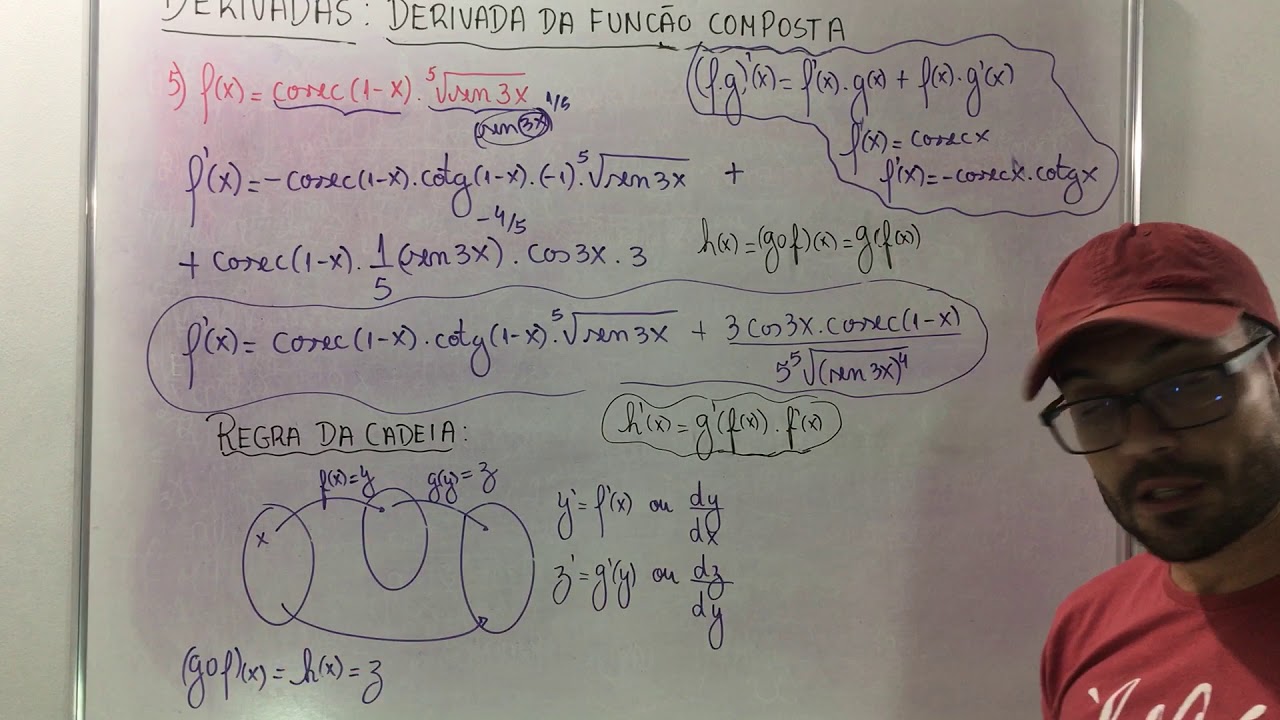 DERIVADAS: DERIVADA DA FUNCÃO COMPOSTA
5) f(x) = cosec(1-x) . ⁵√sen 3x
(sen(3x))^1/5
(f.g)'(x) = f'(x) . g(x) + f(x) . g'(x)
f'(x) = cosec x
f'(x) = -cosec x . cotg x
f'(x) = -cosec(1-x) . cotg(1-x) . (-1) . ⁵√sen 3x +
+ cosec(1-x) . 1/5 (sen 3x)^-4/5 . cos 3x . 3
h(x) = (gof)(x) = g(f(x))
f'(x) = cosec(1-x) . cotg(1-x) . ⁵√sen 3x + 3 cos 3x . cosec(1-x) / 5 ⁵√(sen 3x)⁴
REGRA DA CADEIA:
h'(x) = g'(f(x)) . f'(x)
f(x) = y
g(y) = z
x
y' = f'(x) ou dy/dx
z' = g'(y) ou dz/dy
(gof)(x) = h(x) = z